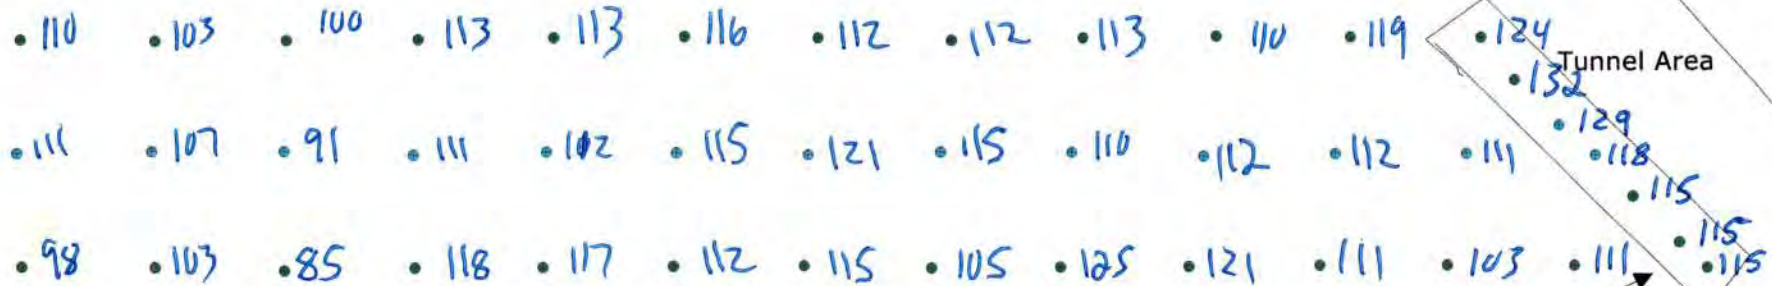 110 103 100 113 113 116 112 112 113 110 119 124
Tunnel Area
132
129
111 107 91 111 102 115 121 115 110 112 112 111 118
115
115
98 103 85 118 117 112 115 105 125 121 111 103 111 115